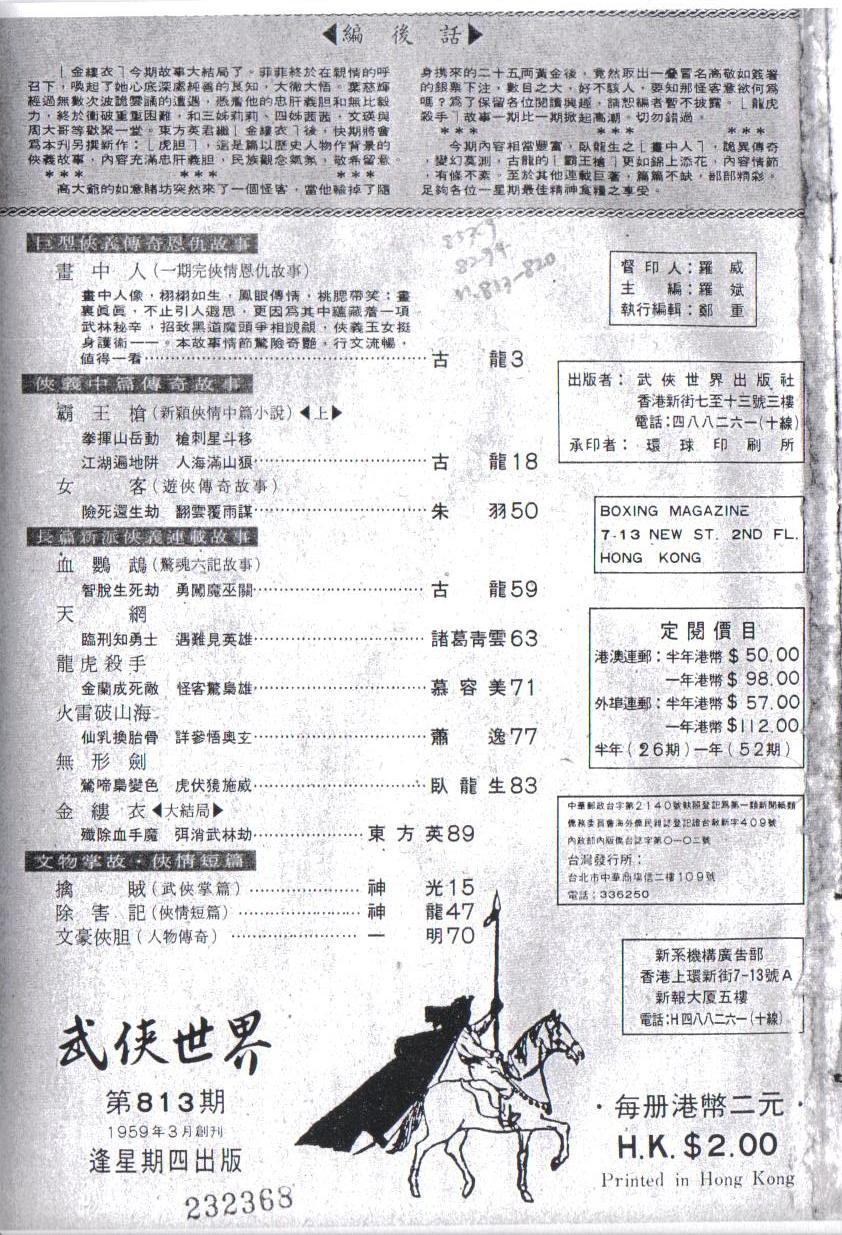 ◀編後話▶
「金縷衣」今期故事大結局了。菲菲終於在親情的呼
召下，喚起了她心底深處純善的良知，大徹大悟。葉慈輝
經過無數次波詭雲譎的遭遇，憑着他的忠肝義胆和無比毅
力，終於衝破重重困難，和三姊莉莉、四姊茜茜，文瑛與
周大哥等歡聚一堂。東方英君繼「金縷衣」後，快期將會
為本刋另撰新作：「虎胆」，這是篇以歷史人物作背景的
俠義故事，內容充滿忠肝義胆，民族觀念氣氛，敬希留意。
＊＊＊ ＊＊＊ ＊＊＊
高大爺的如意賭坊突然來了一個怪客，當他輸掉了隨
身携來的二十五両黃金後，竟然取出一叠冒名高敬如簽署
的銀票下注，數目之大，好不駭人，要知那怪客意欲何為
嗎？為了保留各位閱讀興趣，請恕編者暫不披露。「龍虎
殺手」故事一期比一期掀起高潮。切勿錯過。
＊＊＊ ＊＊＊ ＊＊＊
今期內容相當豐富，臥龍生之「畫中人」，詭異傳奇
，變幻莫測，古龍的「霸王槍」更如錦上添花，內容情節
，有條不紊。至於其他連載巨著，篇篇不缺，部部精彩。
足夠各位一星期最佳精神食糧之享受。
857.9
8294
n.813-820
巨型俠義傳奇恩仇故事
畫中人（一期完俠情恩仇故事）
畫中人像，栩栩如生，鳳眼傳情，桃腮帶笑；畫
裏眞眞，不止引人遐思，更因為其中蘊藏着一項
武林秘辛，招致黑道魔頭爭相覬覦，俠義玉女挺
身護衛一一。本故事情節驚險奇艷，行文流暢，
值得一看……古龍3
俠義中篇傳奇故事
霸王槍（新穎俠情中篇小說）◀上▶
拳揮山岳動 槍刺星斗移
江湖遍地阱 人海滿山狼……古龍18
女客（遊俠傳奇故事）
險死還生劫 翻雲覆雨謀……朱羽50
長篇新派俠義連載故事
血鸚鵡（驚魂六記故事）
智脫生死劫 勇闖魔巫關……古龍59
天網
臨刑知勇士 遇難見英雄……諸葛靑雲63
龍虎殺手
金蘭成死敵 怪客驚梟雄……慕容美71
火雷破山海
仙乳換胎骨 詳參悟奧玄……蕭逸77
無形劍
鶯啼梟變色 虎伏獍施威……臥龍生83
金縷衣◀大結局▶
殲除血手魔 弭消武林劫……東方英89
文物掌故・俠情短篇
擒賊（武俠掌篇）……神光15
除害記（俠情短篇）……神龍47
文豪俠胆（人物傳奇）……一明70
督印人：羅威
主編：羅斌
執行編輯：鄭重
出版者：武俠世界出版社
香港新街七至十三號三樓
電話：四八八二六一（十線）
承印者：環球印刷所
BOXING MAGAZINE
7-13 NEW ST. 2ND FL.
HONG KONG
定閱價目
港澳連郵：半年港幣＄50.00
一年港幣＄98.00
外埠連郵：半年港幣＄57.00
一年港幣＄112.00
半年（26期）一年（52期）
中華郵政台字第2140號執照登記為第一類新聞紙類
僑務委員會海外僑民雜誌登記證台教新字409號
內政部內版僑台誌字第〇一〇二號
台灣發行所：
台北市中華商場信二樓109號
電話：336250
新系機構廣告部
香港上環新街7-13號A
新報大厦五樓
電話：H四八八二六一（十線）
武俠世界
第813期
1959年3月創刊
逢星期四出版
232368
・每册港幣二元・
H.K.$2.00
Printed in Hong Kong